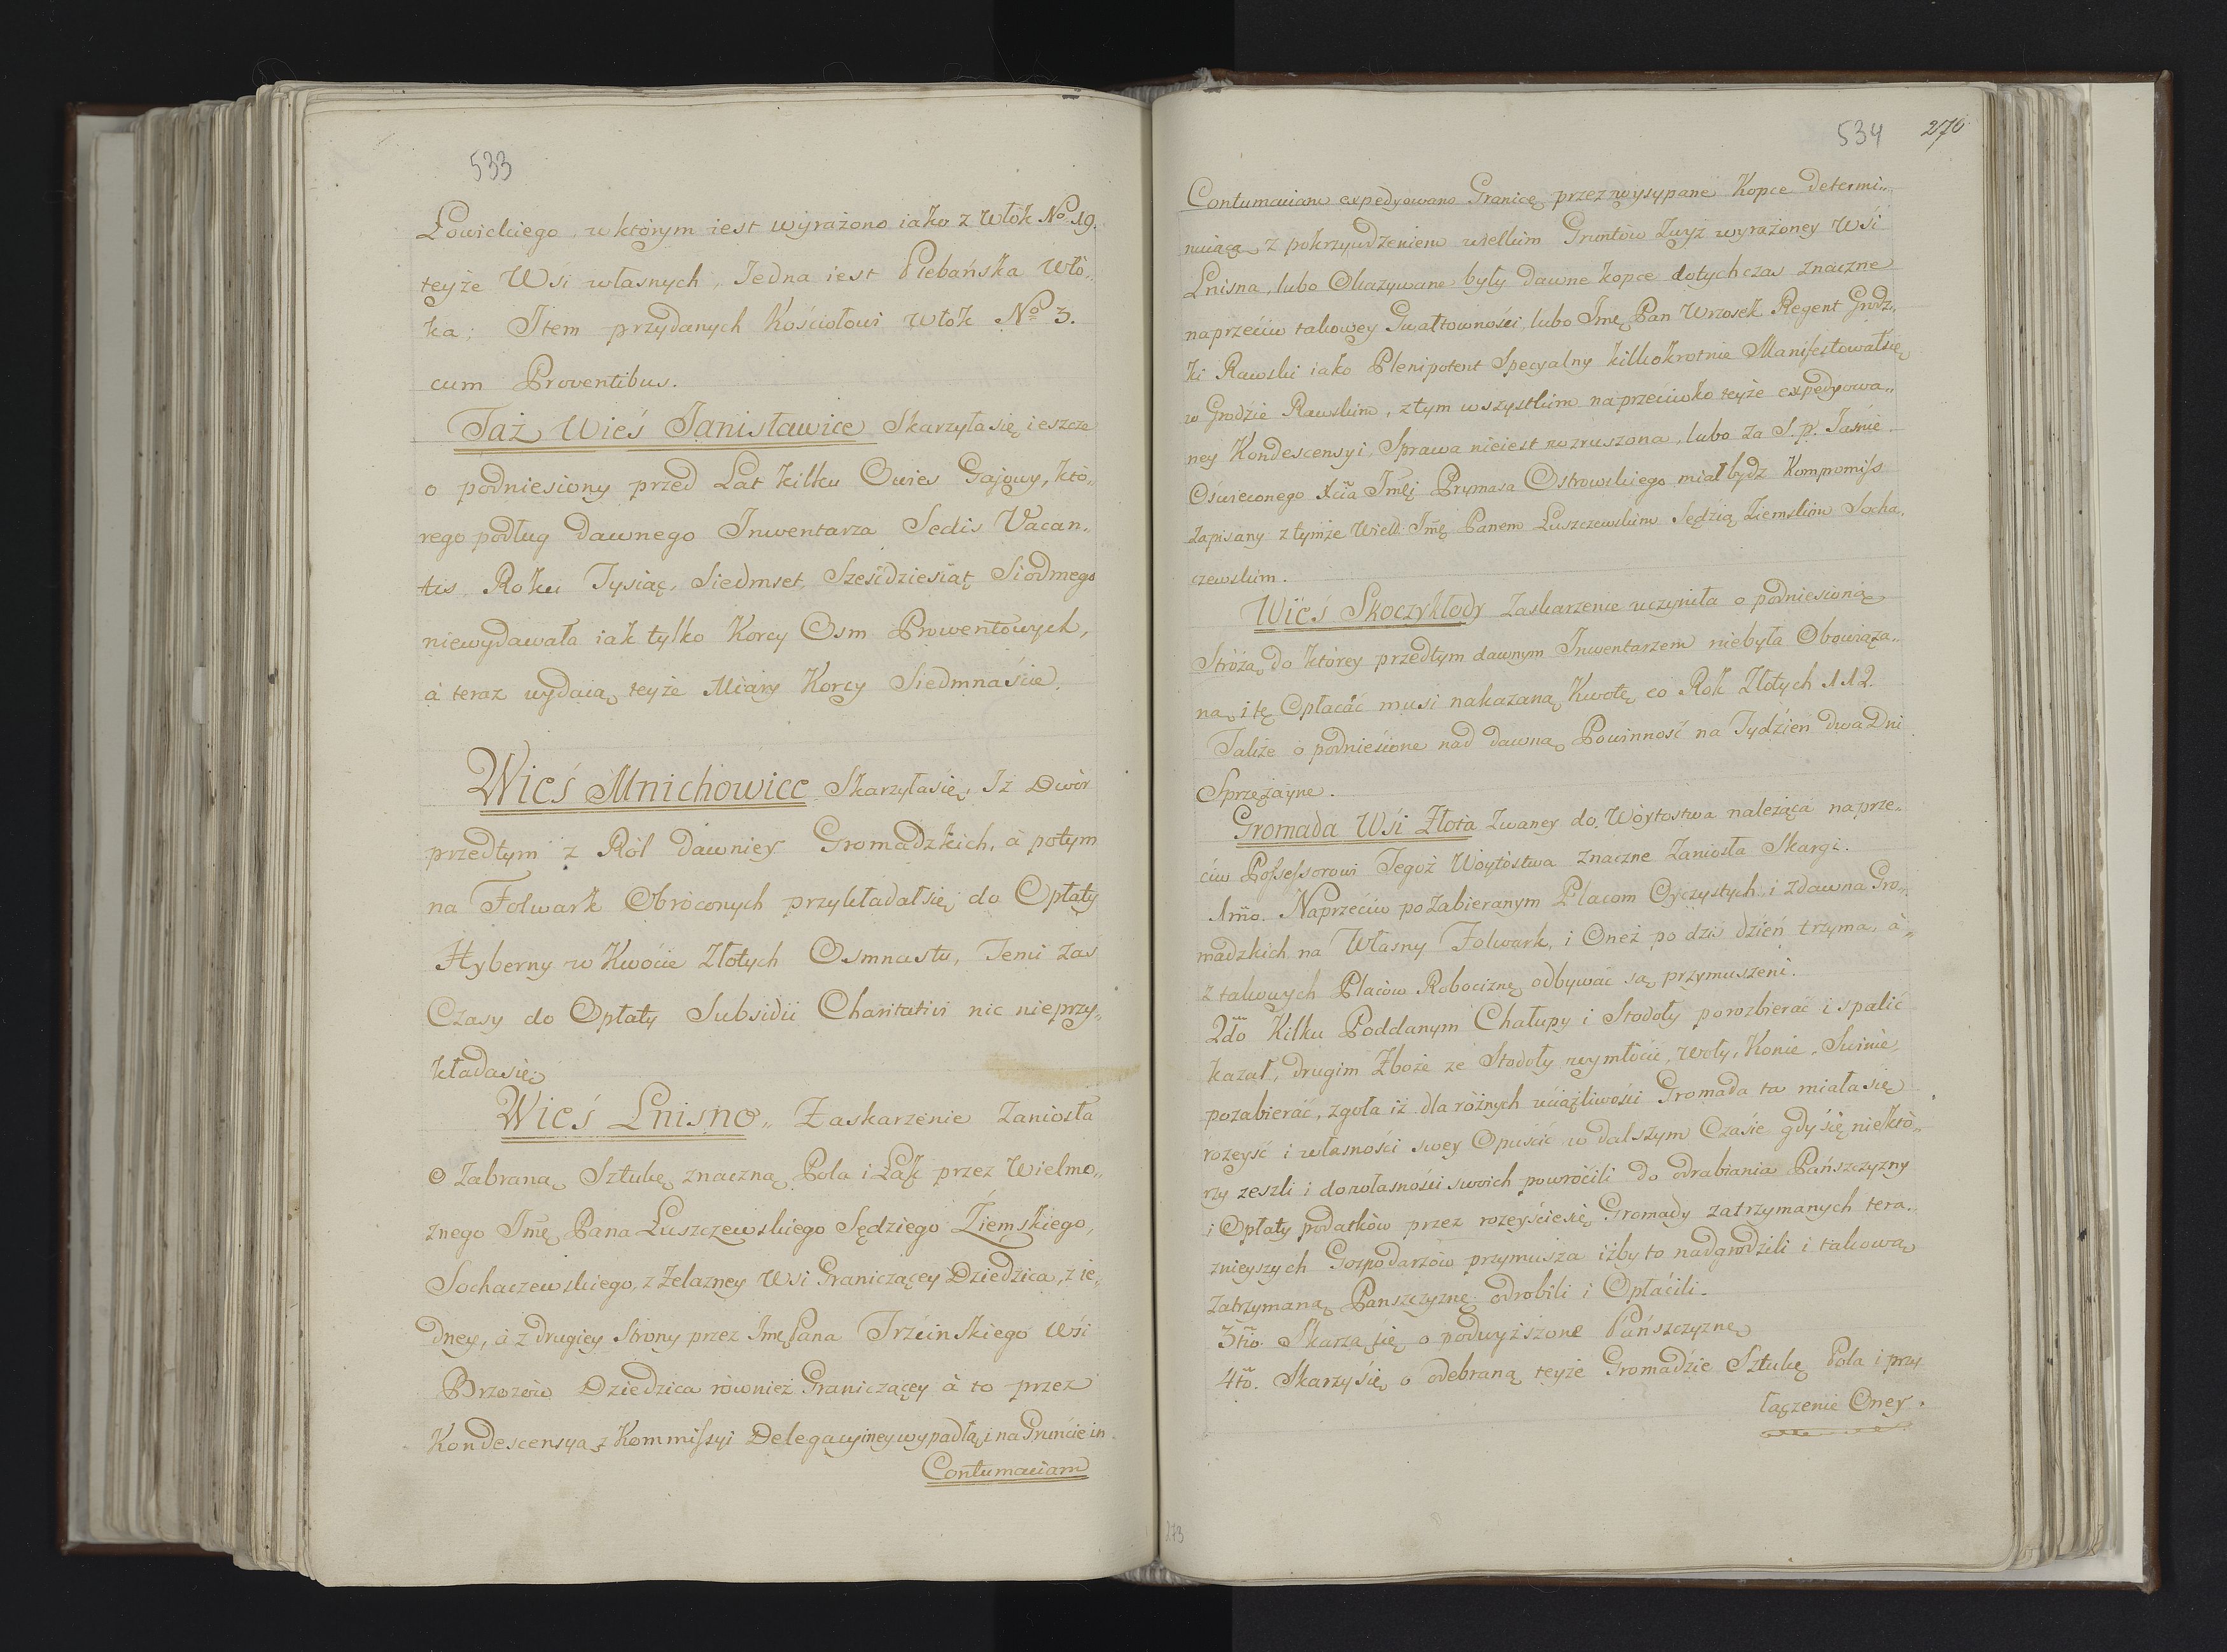 533
Łowickiego, w którym iest wyrażono iako z Włók No 19.
teyże Wsi własnych, Jedna iest Plebańska Wło„
ka; Item przydanych Kościołowi Włók No 3.
cum Proventibus.
Taż Wieś Janisławice Skarzyła się ieszcze
o podniesiony przed Lat kilku Owies Gajowy, któ„
rego podług dawnego Inwentarza Sedis Vacan„
tis, Roku Tysiąc, Siedmset, Sześćdziesiąt Siodmego
niewydawała iak tylko Korcy Osm Prowentowych,
à teraz wydaią teyże Miary Korcy Siedmnaście.
Wieś Mnichowice Skarzyła się, Iż Dwór
przedtym z Ról dawniey Gromadzkich, à potym
na Folwark Obróconych przykładał się do Opłaty
Hyberny w Kwocie Złotych Osmnastu, Temi zas
Czasy do Opłaty Subsidii Charitativi nic nieprzy„
kłada się;
Wieś Lnisno„ Zaskarzenie Zaniosła
O Zabraną Sztukę znaczną Pola i Łąk przez Wielmo„
znego Jmę Pana Łuszczewskiego Sędziego Ziemskiego,
Sochaczewskiego, z Zelazney Wsi Graniczącey Dziedzica, z ie„
dney, à z drugiey Strony przez Jmę Pana Trzcinskiego Wsi
Brzozów Dziedzica również Graniczącey à to przez
Kondescensyą z Kommissyi Delegacyiney wypadłą, i na Gruncie in
Contumaciam
534 270
Contumaciam expedyowano Granicę przez wysypane Kopce determi„
nuiącą, z pokrzywdzeniem wielkim Gruntów Zwyż wyrażoney Wsi
Lnisna, lubo Okazywane były dawne kopce dotychczas znaczne
naprzeciw takowey Gwałtowności, lubo Jmę Pan Wrzosek Regent Grodz„
ki Rawski iako Plenipotent Specyalny kilkokrotnie Manifestował się
w Grodzie Rawskim, z tym wszystkim naprzeciwko teyże expedyowa„
ney Kondescensyi, Sprawa nieiest wzruszona, lubo za S. p. Jaśnie
Oświeconego Xcia Jmci Prymasa Ostrowskiego miał bydz Kompromiss
Zapisany z tymże Wiel: Jmę Panem Łuszczewskim Sędzią Ziemskim Socha„
czewskim.
Wieś Skoczykłody Zaskarzenie uczyniła o podniesioną
Stróżą, do którey przedtym dawnym Inwentarzem niebyła Obowiąza„
na, i tę Opłacać musi nakazaną Kwotę, co Rok Złotych 112.
Także o podniesione nad dawną Powinność na Tydzień dwa Dni
Sprzężayne.
Gromada Wsi Złota Zwaney do Wóytostwa należąca naprze„
ciw Possessorowi Tegoż Wóytóstwa znaczne Zaniosła Skargi.
1mo. Naprzeciw pozabieranym Placom Oyczystych i zdawna Gro„
madzkich na Własny Folwark, i Oneż po dziś dzień trzyma, à„
z takowych Placów Robociznę odbywać są przymuszeni.
2do Kilku Poddanym Chałupy i Stodoły porozbierać i spalić
kazał, drugim Zboże ze Stodoły wymłócić, Woły, Konie, Swinie,
pozabierać, zgoła iż dla różnych uciążliwości Gromada ta miała się
rozeyść i własności swey Opuścić w dalszym Czasie gdy się niektó„
rzy zeszli i do własności swoich powrócili do odrabiania Pańszczyzny
i Opłaty podatków przez rozeyście się Gromady zatrzymanych tera„
znieyszych Gospodarzów przymusza iżby to nadgrodzili i takową
Zatrzymaną Panszczyznę odrobili i Opłacili.
3tio. Skarzą się o podwyższone Pańszczyznę
4to. Skarzy się o odebraną teyże Gromadzie Sztukę Pola i przy
łączenie Oney.
273